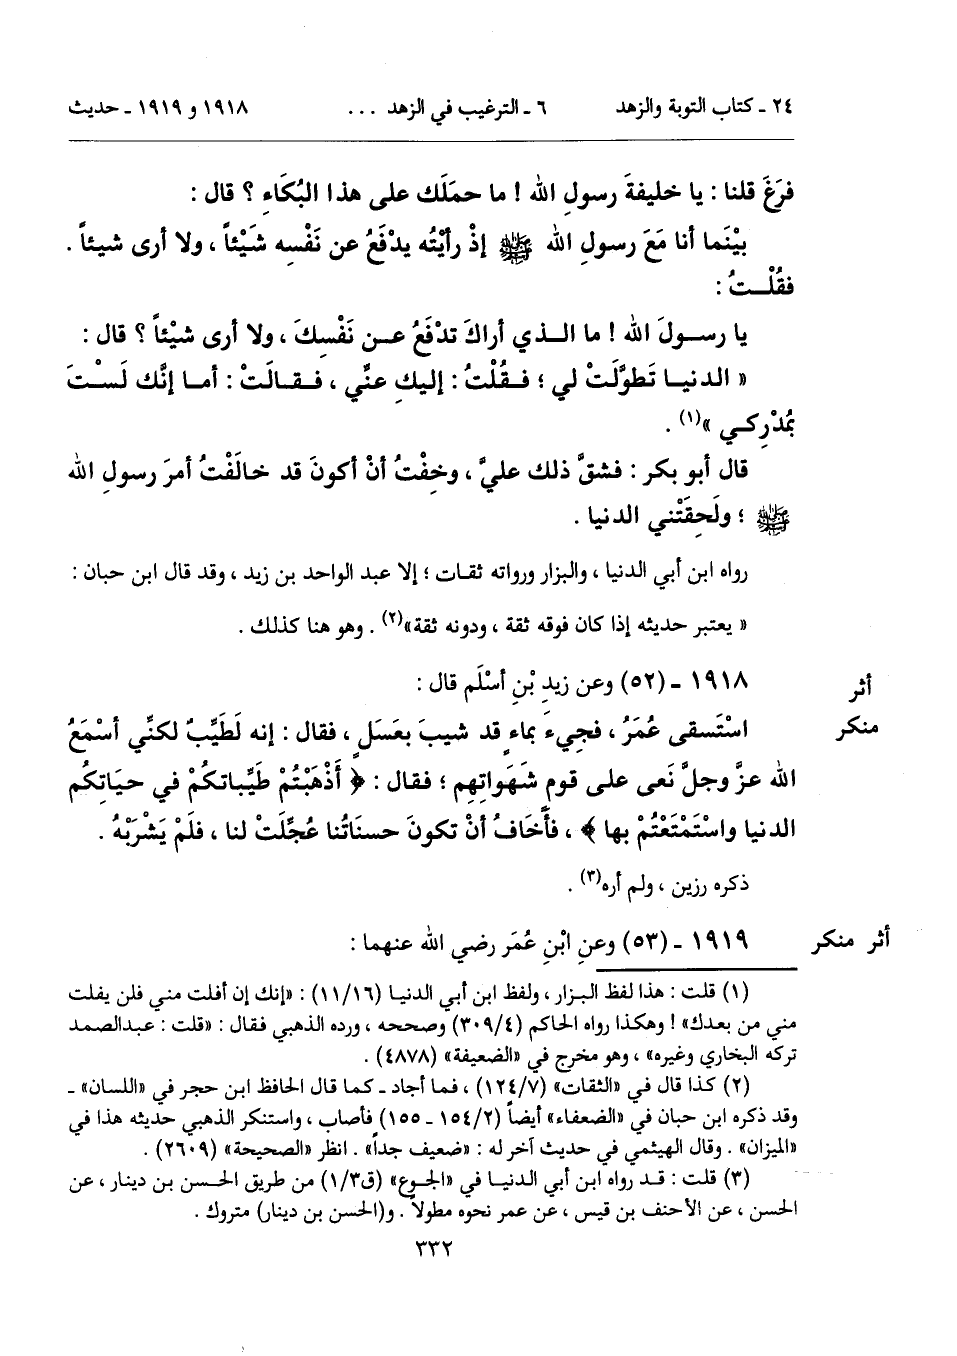 ٢٤ ـ كتاب التوبة والزهد ٦ ـ الترغيب في الزهد ... ١٩١٨ و ١٩١٩ ـ حديث
فرَغَ قلنا : يا خليفةَ رسولِ الله ! ما حملَك على هذا البُكَاءِ ؟ قال :
بيْنَما أنا مَعَ رسولِ الله ﷺ إذْ رأيْتُه يدْفَعُ عن نَفْسِه شَيْئاً ، ولا أرى شيئاً .
فقُلْـتُ :
يا رسـولَ الله ! ما الـذي أراكَ تدْفَعُ عـن نَفْسِكَ ، ولا أرى شيْئاً ؟ قال :
« الدنيـا تَطوَّلَتْ لي ؛ فـقُلْتُ : إليكِ عنِّي ، فـقـالَتْ : أمـا إنَّك لَسْـتَ
بمُدْرِكـي »(١) .
قال أبو بكر : فشقَّ ذلك عليَّ ، وخِفْتُ أنْ أكونَ قد خالَفْتُ أمرَ رسولِ الله
ﷺ ؛ ولَحِقَتْني الدنيا .
رواه ابن أبي الدنيا ، والبزار ورواته ثقات ؛ إلا عبد الواحد بن زيد ، وقد قال ابن حبان :
« يعتبر حديثه إذا كان فوقه ثقة ، ودونه ثقة»(٢) . وهو هنا كذلك .
أثر ١٩١٨ ـ (٥٢) وعن زيدِ بْنِ أسْلَم قال :
منكر اسْتَسقى عُمَرُ ، فجِيءَ بماءٍ قد شيبَ بعَسَلٍ ، فقال : إنه لَطَيِّبٌ لكنِّي أسْمَعُ
الله عزَّ وجلَّ نَعى على قومٍ شَهَواتِهِم ؛ فقال : ﴿ أَذْهَبْتُمْ طَيِّباتكُمْ في حيَاتِكُم
الدنيا واسْتَمْتَعْتُمْ بها ﴾ ، فأَخَافُ أنْ تكونَ حسنَاتُنا عُجِّلَتْ لنا ، فلَمْ يَشْرَبْهُ .
ذكره رزين ، ولم أره(٣) .
أثر منكر ١٩١٩ ـ (٥٣) وعنِ ابْنِ عُمَر رضي الله عنهما :
(١) قلت : هذا لفظ البزار ، ولفظ ابن أبي الدنيا (١١/١٦) : «إنك إن أفلت مني فلن يفلت
مني من بعدك» ! وهكذا رواه الحاكم (٣٠٩/٤) وصححه ، ورده الذهبي فقال : «قلت : عبدالصمد
تركه البخاري وغيره» ، وهو مخرج في «الضعيفة» (٤٨٧٨) .
(٢) كذا قال في «الثقات» (١٢٤/٧) ، فما أجاد ـ كما قال الحافظ ابن حجر في «اللسان» ـ
وقد ذكره ابن حبان في «الضعفاء» أيضاً (١٥٤/٢ ـ ١٥٥) فأصاب ، واستنكر الذهبي حديثه هذا في
«الميزان» . وقال الهيثمي في حديث آخر له : «ضعيف جداً» . انظر «الصحيحة» (٢٦٠٩) .
(٣) قلت : قـد رواه ابن أبي الدنيـا في «الجوع» (ق١/٣) من طريق الحسـن بن دينار ، عن
الحسن ، عن الأحنف بن قيس ، عن عمر نحوه مطولاً . و(الحسن بن دينار) متروك .
٣٣٢